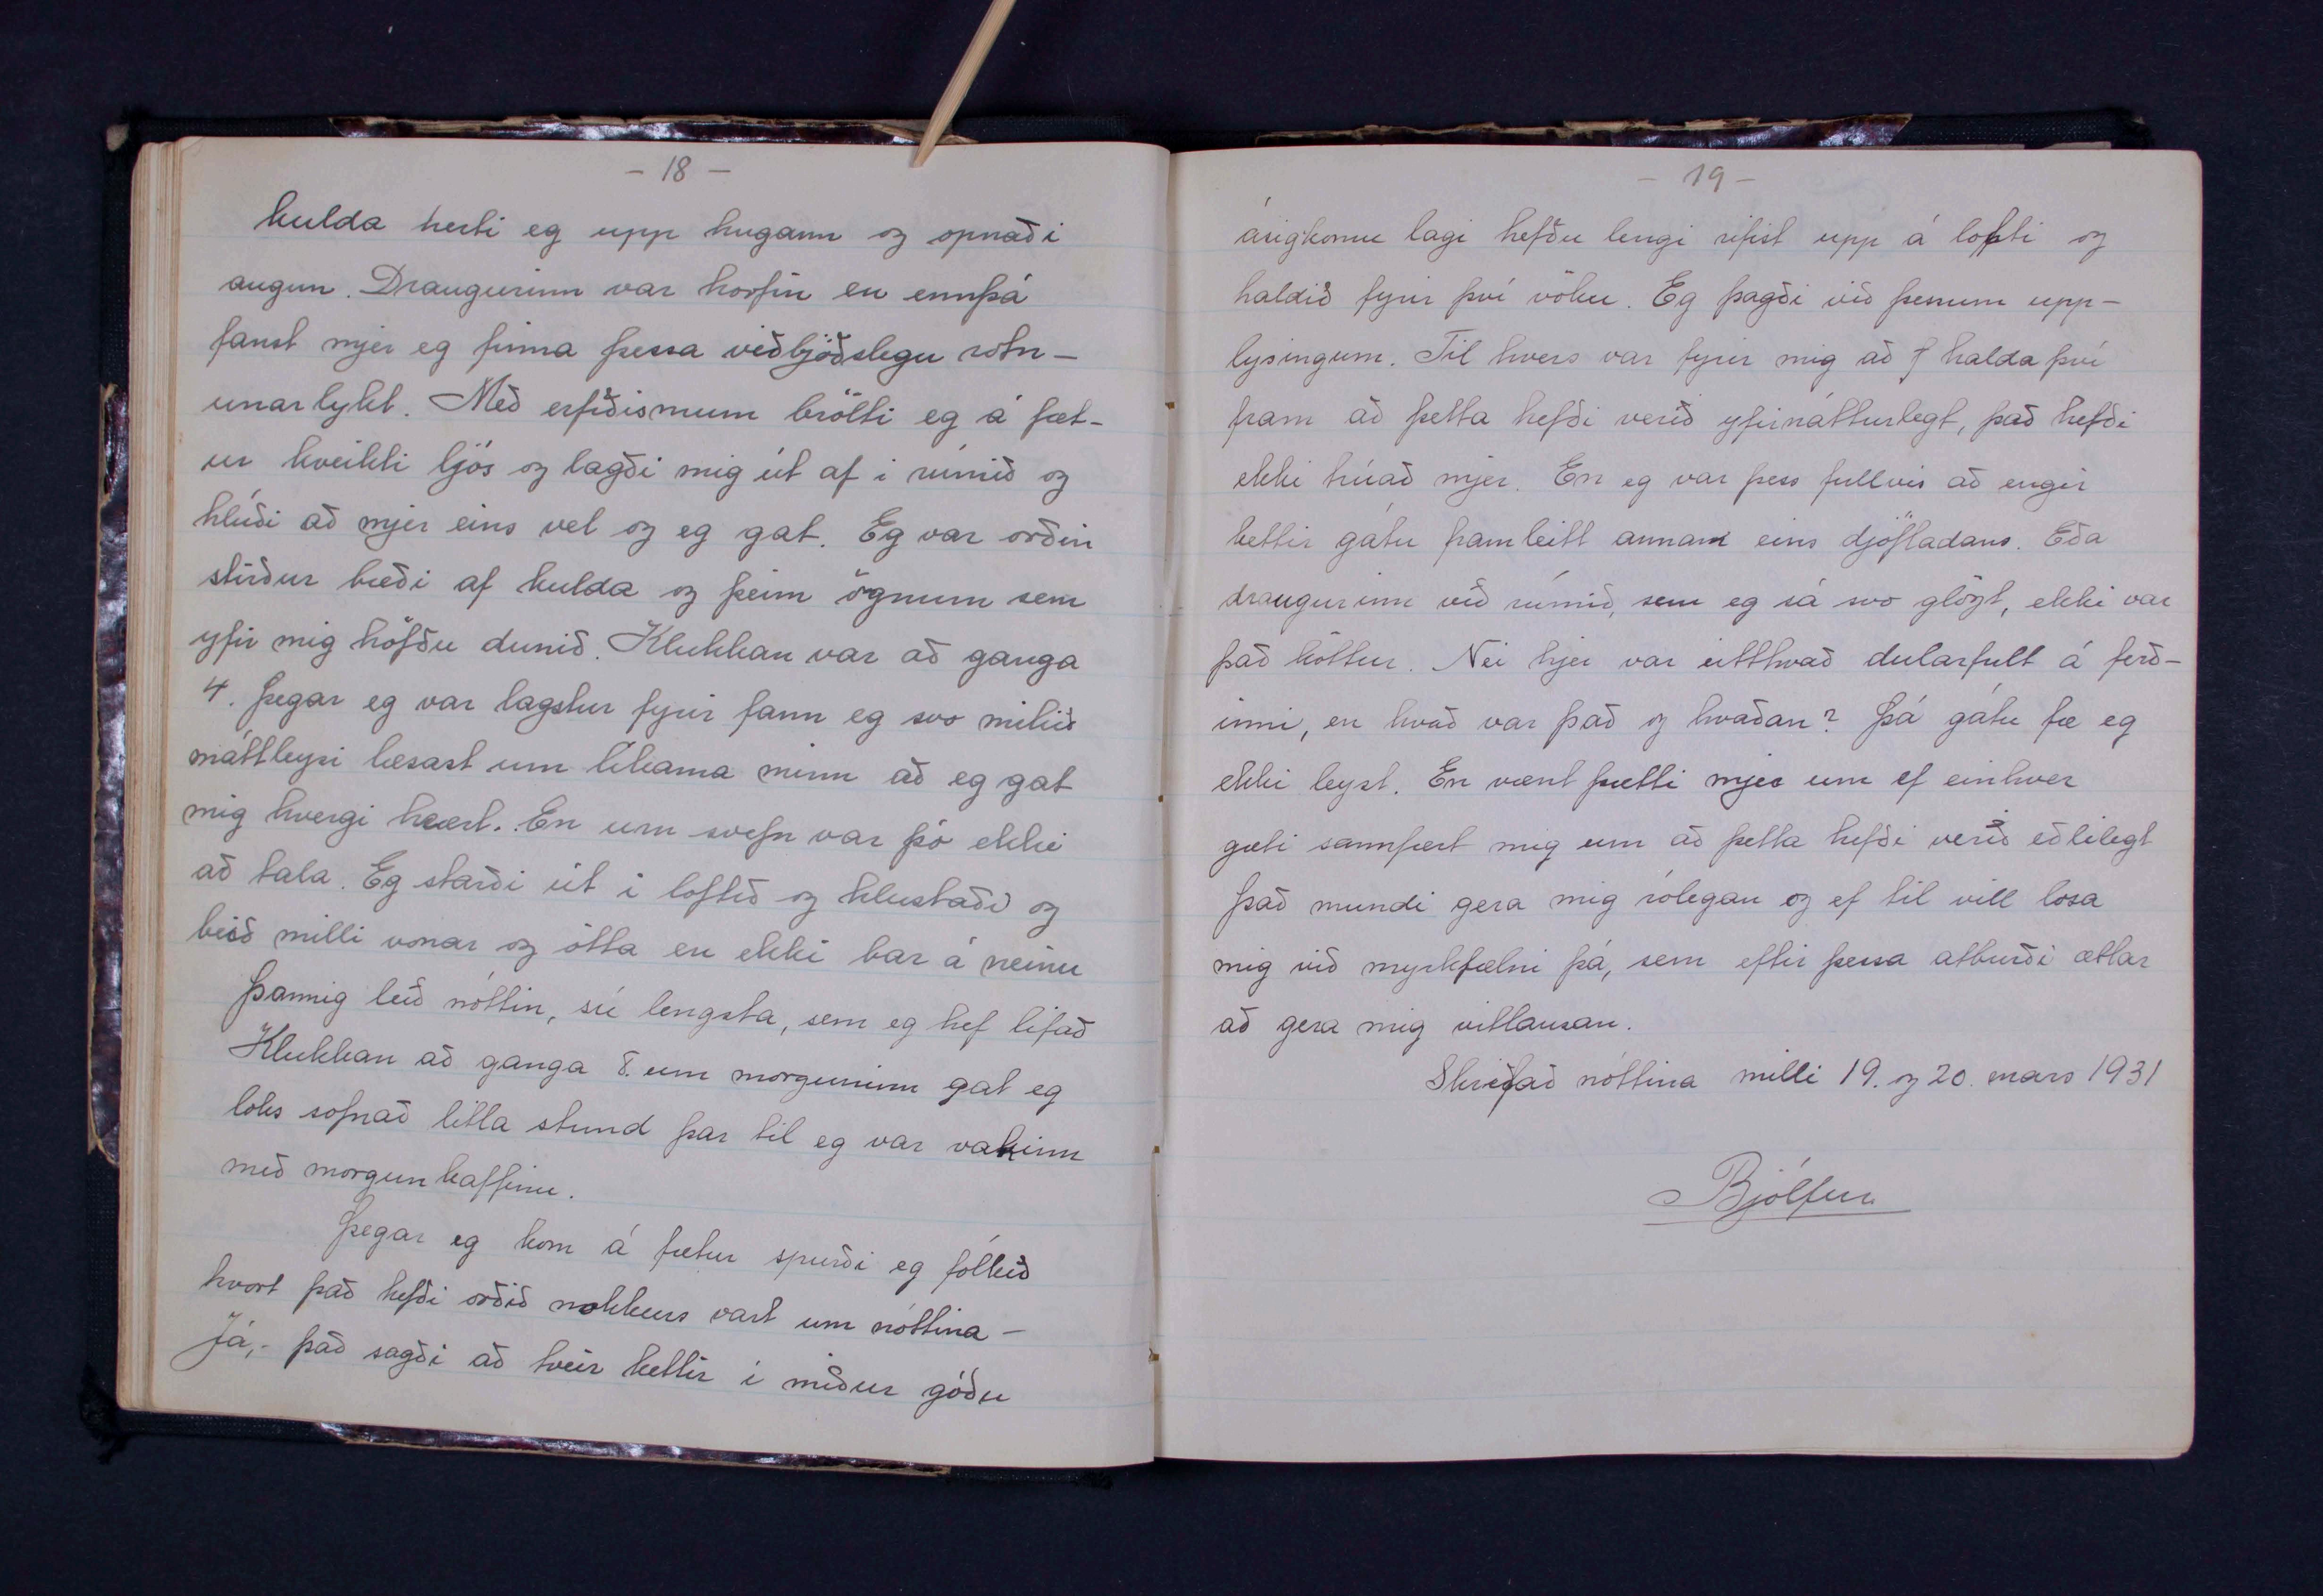 - 18 -
kulda herti eg upp hugann og opnaði
augun. Draugurinn var horfin en ennþá
fanst mjer eg finna þessa viðbjóðslegu rotn-
unarlykt. Með erfiðismunum brölti eg á fæt-
ur kveikti ljós og lagði mig út af i rúmið og
hlúði að mjer eins vel og eg gat. Eg var orðin
stirður bæði af kulda og þeim ógnum sem
yfir mig höfðu dunið. Klukkan var að ganga
4. Þegar eg var lagstur fyrir fann eg svo mikið
máttleysi læsast um líkama minn að eg gat
mig hvergi hært. En um svefn var þó ekki
að tala. Eg starði út í loftið og hlustaði og
beið milli vonar og ótta en ekki bar á neinu
Þannig leið nóttin, sú lengsta, sem eg hef lifað
Klukkan að ganga 8. um morguninn gat eg
loks sofnað litla stund þar til eg var vakinn
með morgunkaffinu.
Þegar eg kom á fætur spurði eg fólkið
hvort það hefði orðið nokkurs vart um nóttina -
Já,- það sagði að tveir kettir i miður góðu
- 19 -
ásigkomu lagi hefðu lengi rifist upp á lofti og
haldið fyrir því vöku. Eg þagði við þessum upp-
lysingum. Til hvers var fyrir mig að halda því
fram að þetta hefði verið yfirnátturlegt, það hefði
ekki trúað mjer. En eg var þess fullvis að engir
kettir gátu framleitt annan eins djöfladans. Eða
draugurinn við rúmið, sem eg sá svo glögt, ekki var
það köttur. Nei hjer var eitthvað dularfult á ferð-
inni, en hvað var það og hvaðan? Þá gátu fæ eg
ekki leyst. En vænt þætti mjer um ef einhver
gæti sannfært mig um að þetta hefði verið eðlilegt
Það mundi gera mig rólegan og ef til vill losa
mig við myrkfælni þá, sem eftir þessa atburði ætlar
að gera mig vitlausan.
Skrifað nóttina milli 19. og 20. mars 1931
Bjólfur